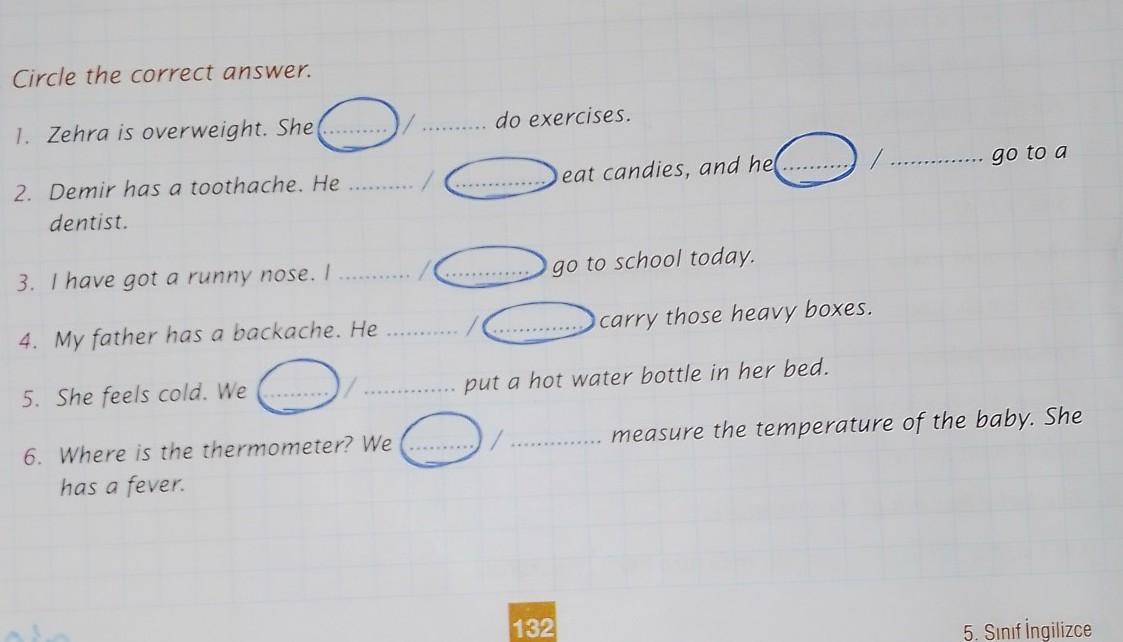 Circle the correct answer.
1. Zehra is overweight. She .......... / .......... do exercises.
2. Demir has a toothache. He .......... / .............. eat candies, and he ........... / .............. go to a
dentist.
3. I have got a runny nose. I ........... / ............. go to school today.
4. My father has a backache. He ........... / .............. carry those heavy boxes.
5. She feels cold. We .......... / .............. put a hot water bottle in her bed.
6. Where is the thermometer? We .......... / .............. measure the temperature of the baby. She
has a fever.
132
5. Sınıf İngilizce